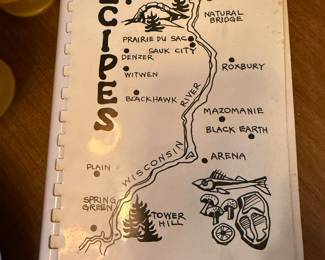 CIPES
NATURAL
BRIDGE
PRAIRIE DU SAC
SAUK CITY
DENZER
ROXBURY
WITWEN
BLACKHAWK
MAZOMANIE
BLACK EARTH
WISCONSIN RIVER
ARENA
PLAIN
SPRING
GREEN
TOWER
HILL